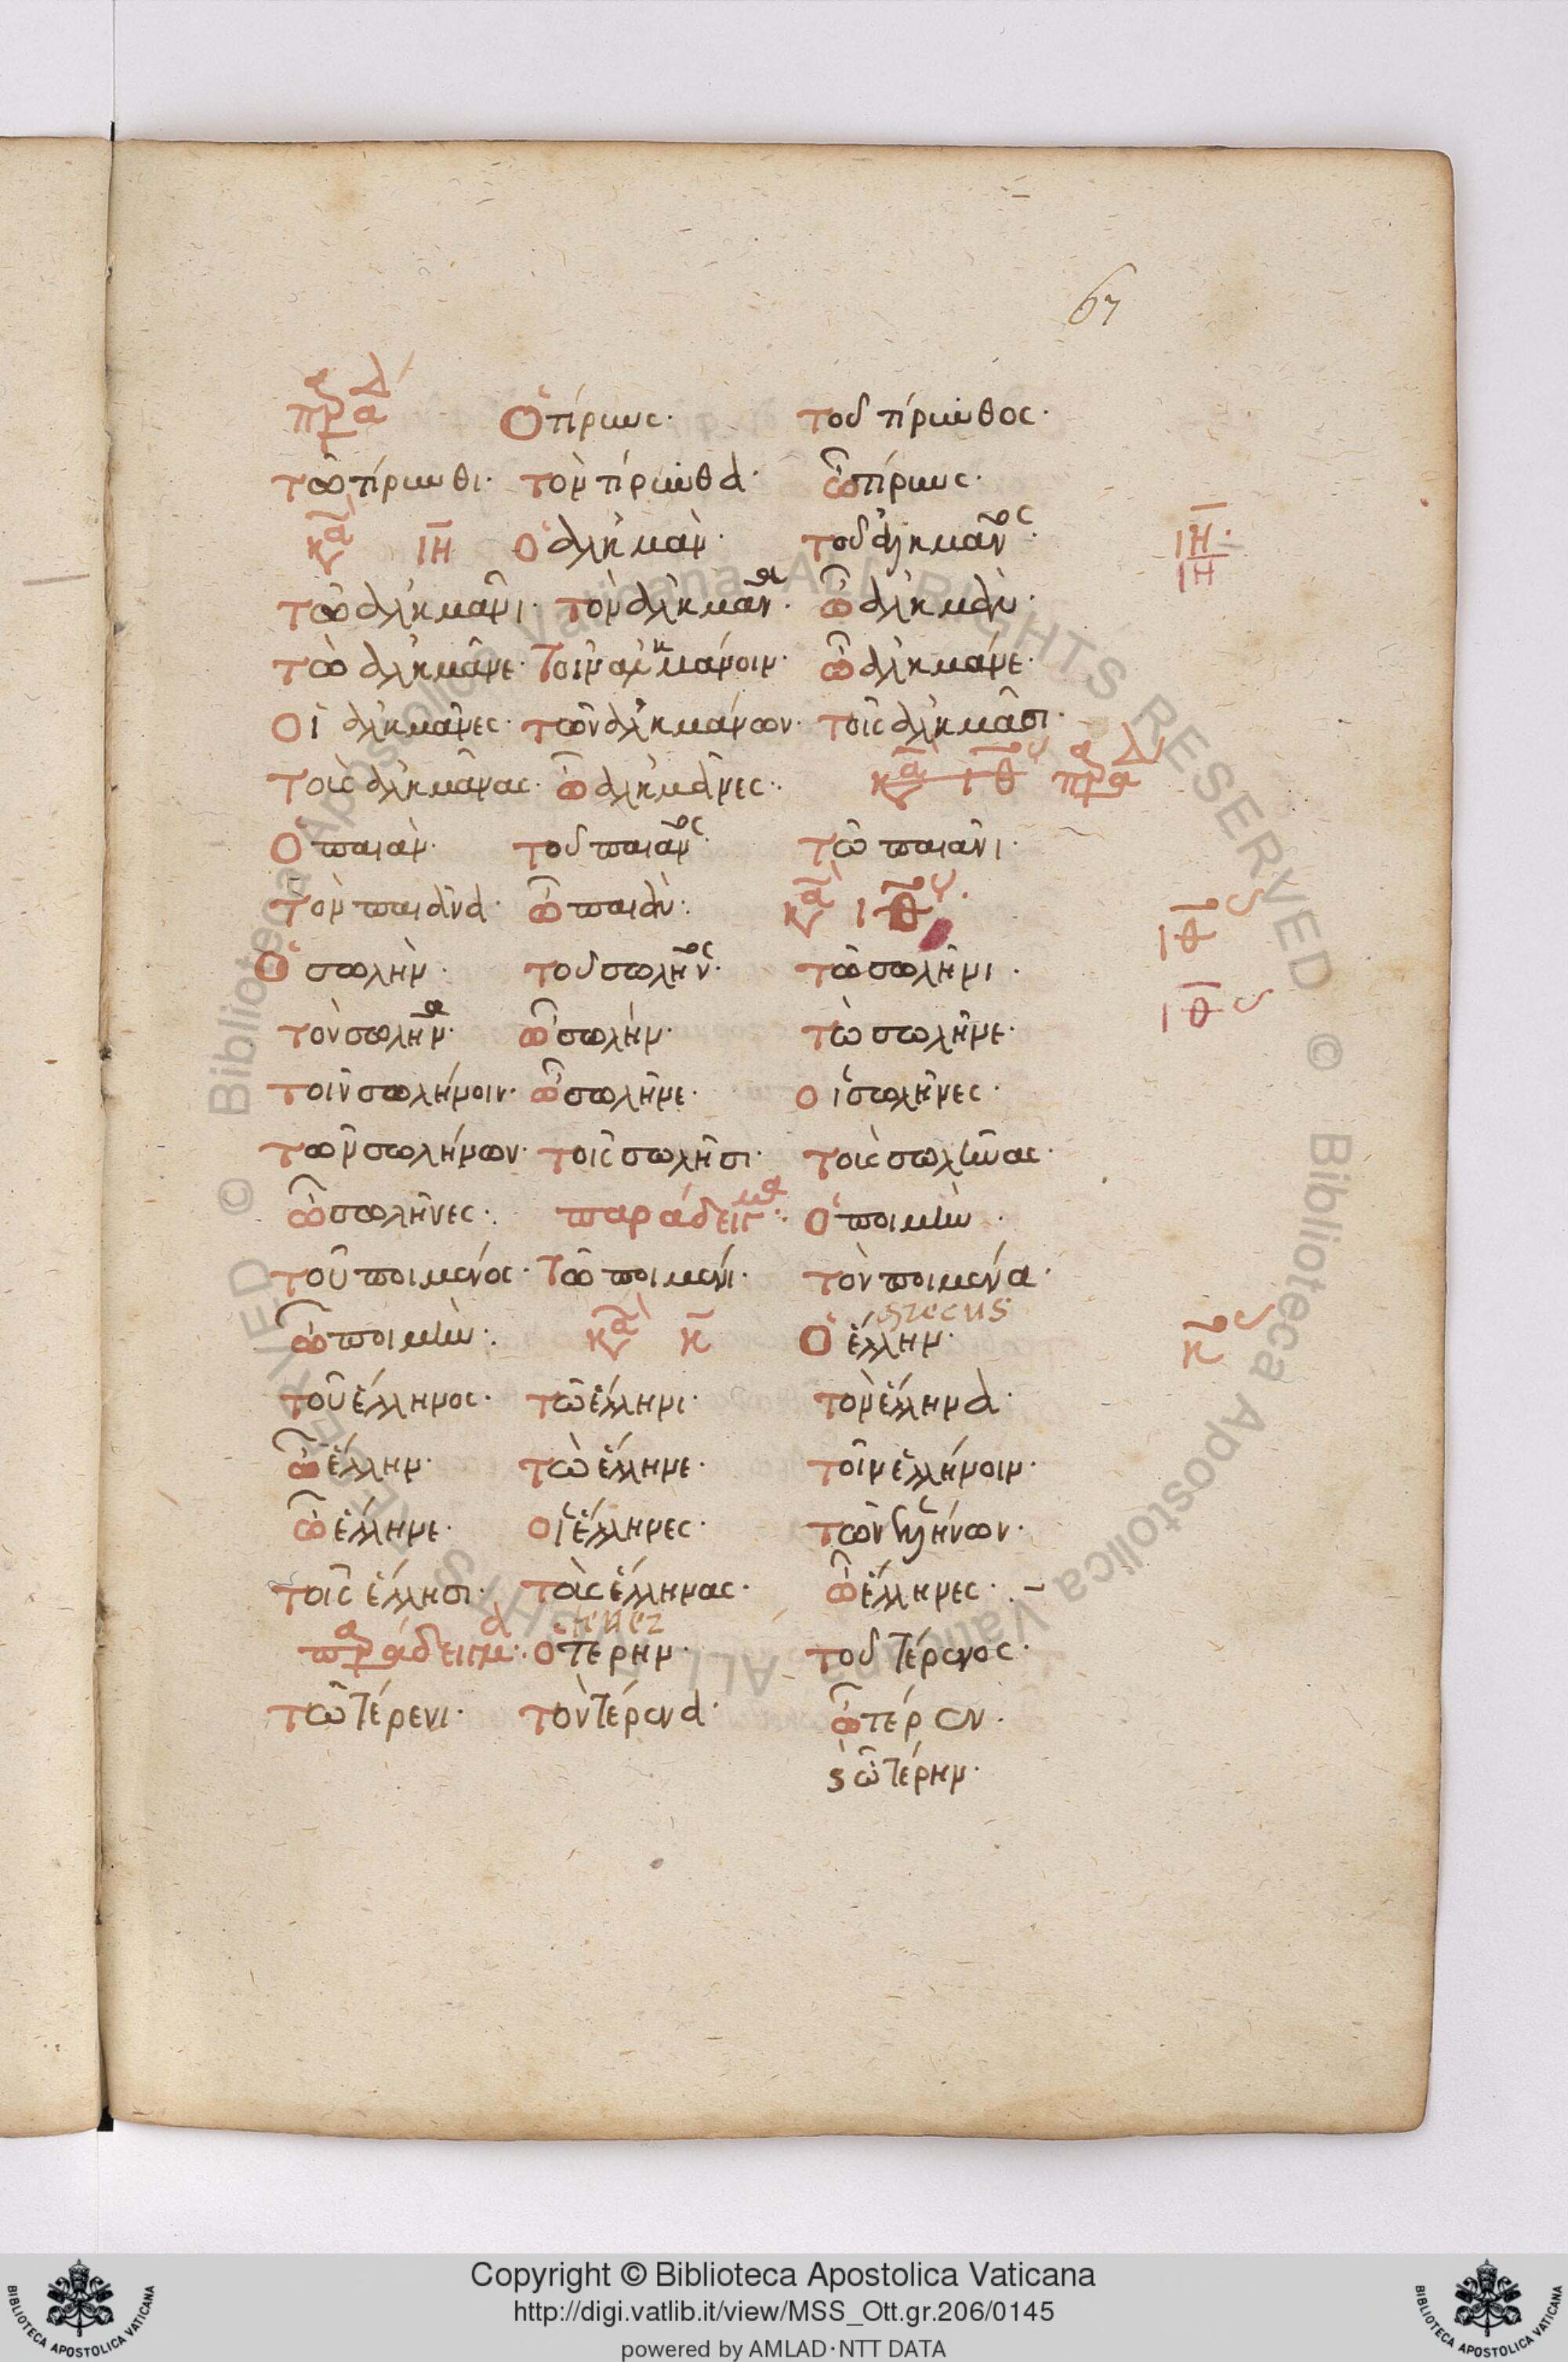 67
πρα Δ Ὁ τίρυνς· τοῦ τίρυνθος·
τῶ τίρυνθι· τὸν τίρυνθα· ὦ τίρυνς·
κα ΙΗ ὁ ἀλκμὰν· τοῦ ἀλκμᾶνος· ΙΗ·
ΙΗ
τῶ ἀλκμᾶνι· τὸν ἀλκμᾶνα· ὦ ἀλκμὰν·
τὼ ἀλκμᾶνε· τοῖν ἀλκμάνοιν· ὦ ἀλκμάνε·
Οἱ ἀλκμᾶνες· τῶν ἀλκμάνων· τοῖς ἀλκμᾶσι·
τοὺς ἀλκμᾶνας· ὦ ἀλκμᾶνες· κα ΙΘ πρα Δ
Ὁ παιὰν· τοῦ παιᾶνος· τῶ παιᾶνι·
τὸν παιᾶνα· ὦ παιὰν· κα ΙΘος· ΙΘος
Ὁ σωλὴν· τοῦ σωλῆνος· τῶ σωλῆνι· ΙΘς
τὸν σωλῆνα· ὦ σωλὴν· τὼ σωλῆνε·
τοῖν σωλήνοιν· ὦ σωλῆνε· οἱ σωλῆνες·
τῶν σωλήνων· τοῖς σωλῆσι· τοὺς σωλῆνας·
ὦ σωλῆνες· παράδειγμα· Ὁ ποιμὴν·
τοῦ ποιμένος· τῶ ποιμένι· τὸν ποιμένα·
ὦ ποιμὴν· κα κ grecus Ὁ ἕλλην· κος
τοῦ ἕλληνος· τῶ ἕλληνι· τὸν ἕλληνα·
ὦ ἕλλην· τὼ ἕλληνε· τοῖν ἑλλήνοιν·
ὦ ἕλληνε· οἱ ἕλληνες· τῶν ἑλλήνων·
τοῖς ἕλλησι· τοὺς ἕλληνας· ὦ ἕλληνες·
παράδειγμα· tener ὁ τέρην· τοῦ τέρενος·
τῶ τέρενι· τὸν τέρενα· ὦ τέρεν·
ὦ τέρην·
© Biblioteca Apostolica Vaticana ALL RIGHTS RESERVED © Biblioteca Apostolica Vaticana ALL RIGHTS RESERVED
Copyright © Biblioteca Apostolica Vaticana
http://digi.vatlib.it/view/MSS_Ott.gr.206/0145
powered by AMLAD·NTT DATA
BIBLIOTECA APOSTOLICA VATICANA
BIBLIOTECA APOSTOLICA VATICANA